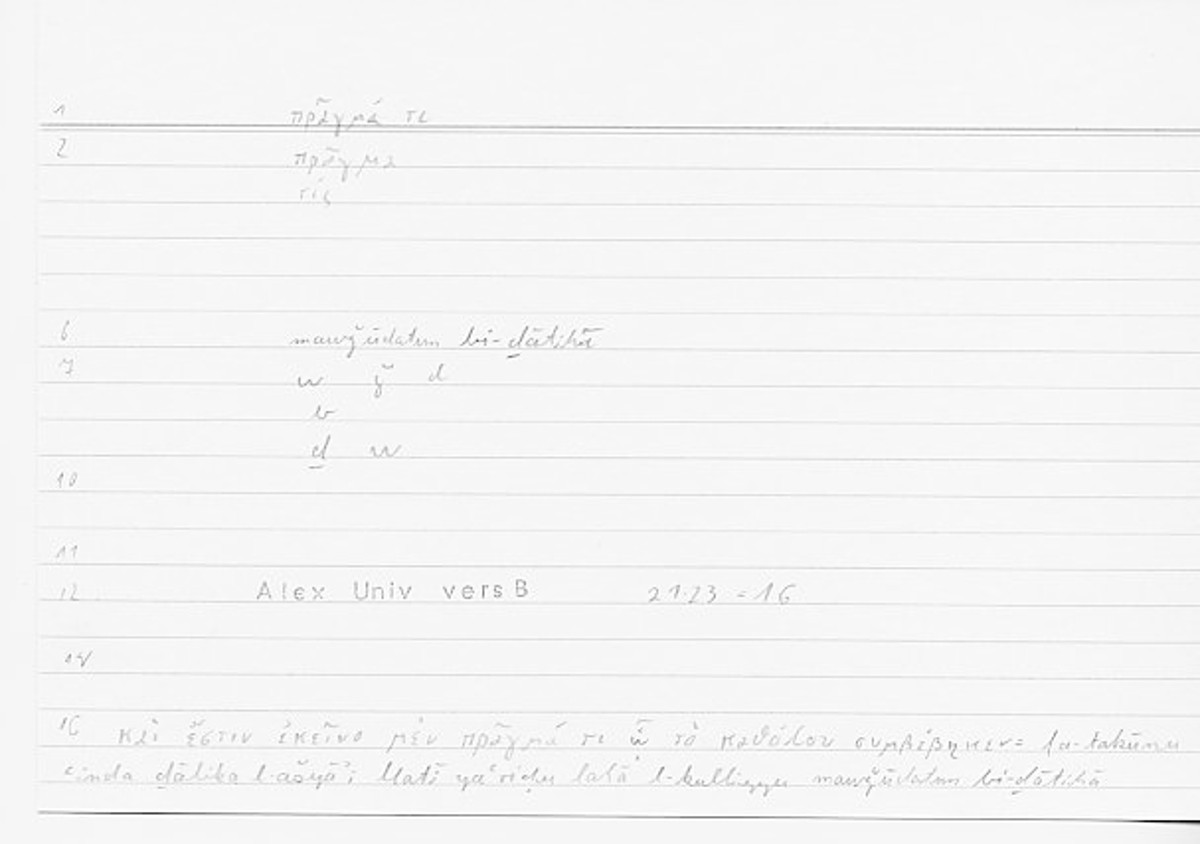 1 πρᾶγμά τι
2 πρᾶγμα
τίς
6 mawǧūdatun bi-ḏātihā
7 w ǧ d
b
ḏ w
10
11
12 Alex Univ vers B 21.23 = 16
14
16 καὶ ἔστιν ἐκεῖνο μὲν πρᾶγμά τι ᾧ τὸ καθόλου συμβέβηκεν = fa-takūnu
ʿinda ḏālika l-ašyāʾi llatī yaʿriḍu lahā l-kulliyyu mawǧūdatun bi-ḏātihā